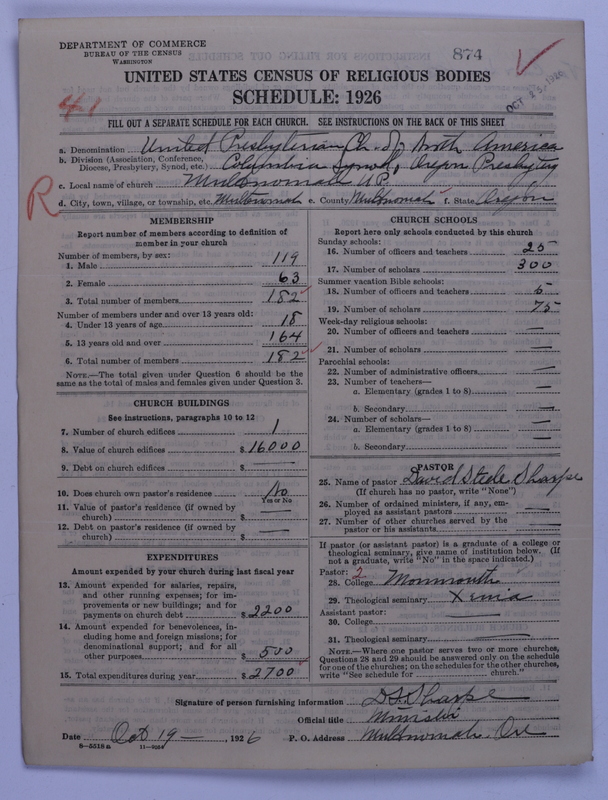 DEPARTMENT OF COMMERCE
BUREAU OF THE CENSUS
WASHINGTON
874
OCT 23 1926
UNITED STATES CENSUS OF RELIGIOUS BODIES
SCHEDULE: 1926
4-1
FILL OUT A SEPARATE SCHEDULE FOR EACH CHURCH. SEE INSTRUCTIONS ON THE BACK OF THIS SHEET
a. Denomination United Presbyterian Ch. of North America
b. Division (Association, Conference, Diocese, Presbytery, Synod, etc.) Columbia Synod, Oregon Presbytery
c. Local name of church Multnomah U.P.
R
d. City, town, village, or township, etc. Multnomah e. County Multnomah f. State Oregon
MEMBERSHIP
Report number of members according to definition of
member in your church
Number of members, by sex:
1. Male 119
2. Female 63
3. Total number of members 182
Number of members under and over 13 years old:
4. Under 13 years of age 18
5. 13 years old and over 164
6. Total number of members 182
NOTE.—The total given under Question 6 should be
same as the total of males and females given under Question 3.
CHURCH BUILDINGS
See instructions, paragraphs 10 to 12
7. Number of church edifices 1
8. Value of church edifices $ 16000
9. Debt on church edifices $ —
10. Does church own pastor's residence No
Yes or No
11. Value of pastor's residence (if owned by
church) $ —
12. Debt on pastor's residence (if owned by
church) $ —
EXPENDITURES
Amount expended by your church during last fiscal year
13. Amount expended for salaries, repairs,
and other running expenses; for im-
provements or new buildings; and for
payments on church debt $ 2200
14. Amount expended for benevolences, in-
cluding home and foreign missions; for
denominational support; and for all
other purposes $ 500
15. Total expenditures during year $ 2700
CHURCH SCHOOLS
Report here only schools conducted by this church
Sunday schools:
16. Number of officers and teachers 25
17. Number of scholars 300
Summer vacation Bible schools:
18. Number of officers and teachers 5
19. Number of scholars 75
Week-day religious schools:
20. Number of officers and teachers —
21. Number of scholars —
Parochial schools:
22. Number of administrative officers —
23. Number of teachers—
a. Elementary (grades 1 to 8) —
b. Secondary —
24. Number of scholars—
a. Elementary (grades 1 to 8) —
b. Secondary —
PASTOR
25. Name of pastor David Steele Sharpe
(If church has no pastor, write "None")
26. Number of ordained ministers, if any, em-
ployed as assistant pastors —
27. Number of other churches served by the
pastor or his assistants —
If pastor (or assistant pastor) is a graduate of a college or
theological seminary, give name of institution below. (If
not a graduate, write "No" in the space indicated.)
Pastor: 2
28. College Monmouth
29. Theological seminary Xenia
Assistant pastor:
30. College —
31. Theological seminary —
NOTE.—Where one pastor serves two or more churches,
Questions 28 and 29 should be answered only on the schedule
for one of the churches; on the schedules for the other churches,
write "See schedule for ______ church."
Signature of person furnishing information D S Sharpe
Official title Minister
Date Oct 19 —, 1926 P. O. Address Multnomah, Ore
8-5518a 11-9054